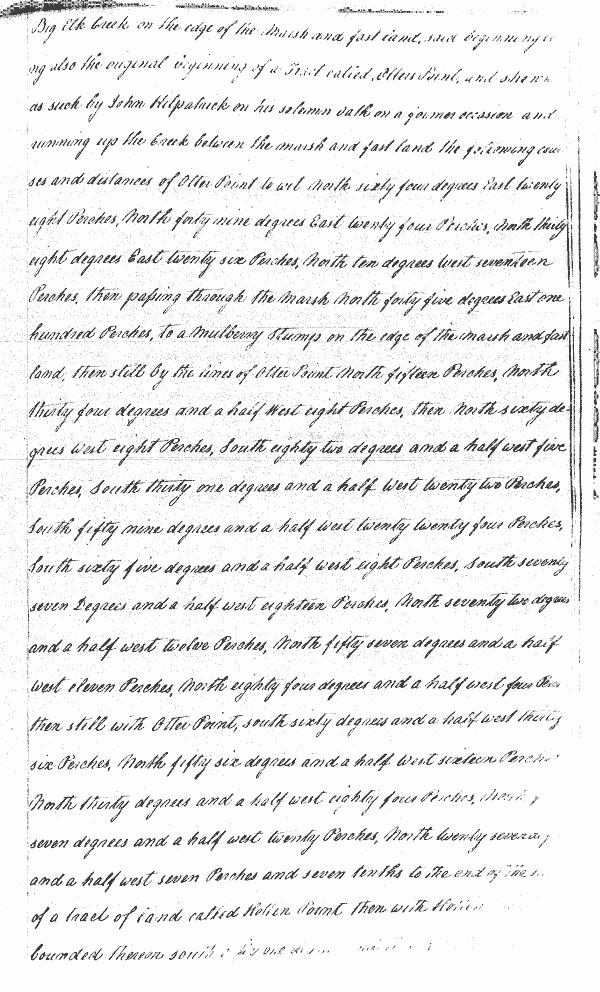 Big Elk Creek on the edge of the Marsh and fast land, said beginning
ng also the original beginning of a Tract called Otter Point, and shewn
as such by John Kilpatrick on his solemn oath on a former occasion and
running up the Creek between the marsh and fast land the following cour
ses and distances of Otter Point to wit North sixty four degrees East twenty
eight Perches, North forty nine degrees East twenty four Perches, North thirty
eight degrees East twenty six Perches, North ten degrees West seventeen
Perches, then passing through the Marsh North forty five degrees East one
hundred Perches, to a Mulberry Stump on the edge of the marsh and fast
land, then still by the lines of Otter Point North fifteen Perches, North
thirty four degrees and a half West eight Perches, then North sixty de-
grees West eight Perches, South eighty two degrees and a half west five
Perches, South thirty one degrees and a half West twenty two Perches,
South fifty nine degrees and a half west twenty twenty four Perches,
South sixty five degrees and a half west eight Perches, South seventy
seven Degrees and a half west eighteen Perches, North seventy two degrees
and a half west twelve Perches, North fifty seven degrees and a half
West eleven Perches, North eighty four degrees and a half west four
then still with Otter Point, south sixty degrees and a half west thirty
six Perches, North fifty six degrees and a half West sixteen Perches
North thirty degrees and a half west eighty four Perches, North
seven degrees and a half west twenty Perches, North twenty seven
and a half west seven Perches and seven tenths to the end of the
of a tract of land called Point then with
bounded thereon south one